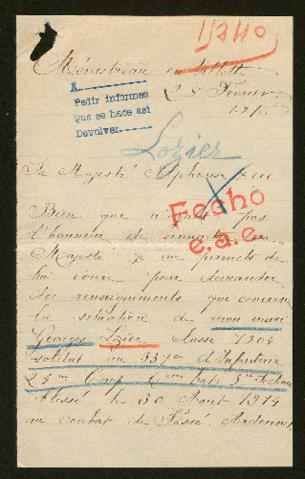 11240
Ménestreau en Villette
28 Février
A
Pedir informes
Que se hace así
Devolver
Lozier
Sa Majesté Alphonse XIII
Fecho
e.a.e.
Bien que n'ayant pas
l'honneur de connaître
Majesté je me permets de
lui écrire pour demander
des renseignements qui concerne
la situation de mon mari
Georges Lozier classe 1904
soldat au 33 d'Infanterie
blessé le 30 Août 1914
au combat de Fossé Ardennes